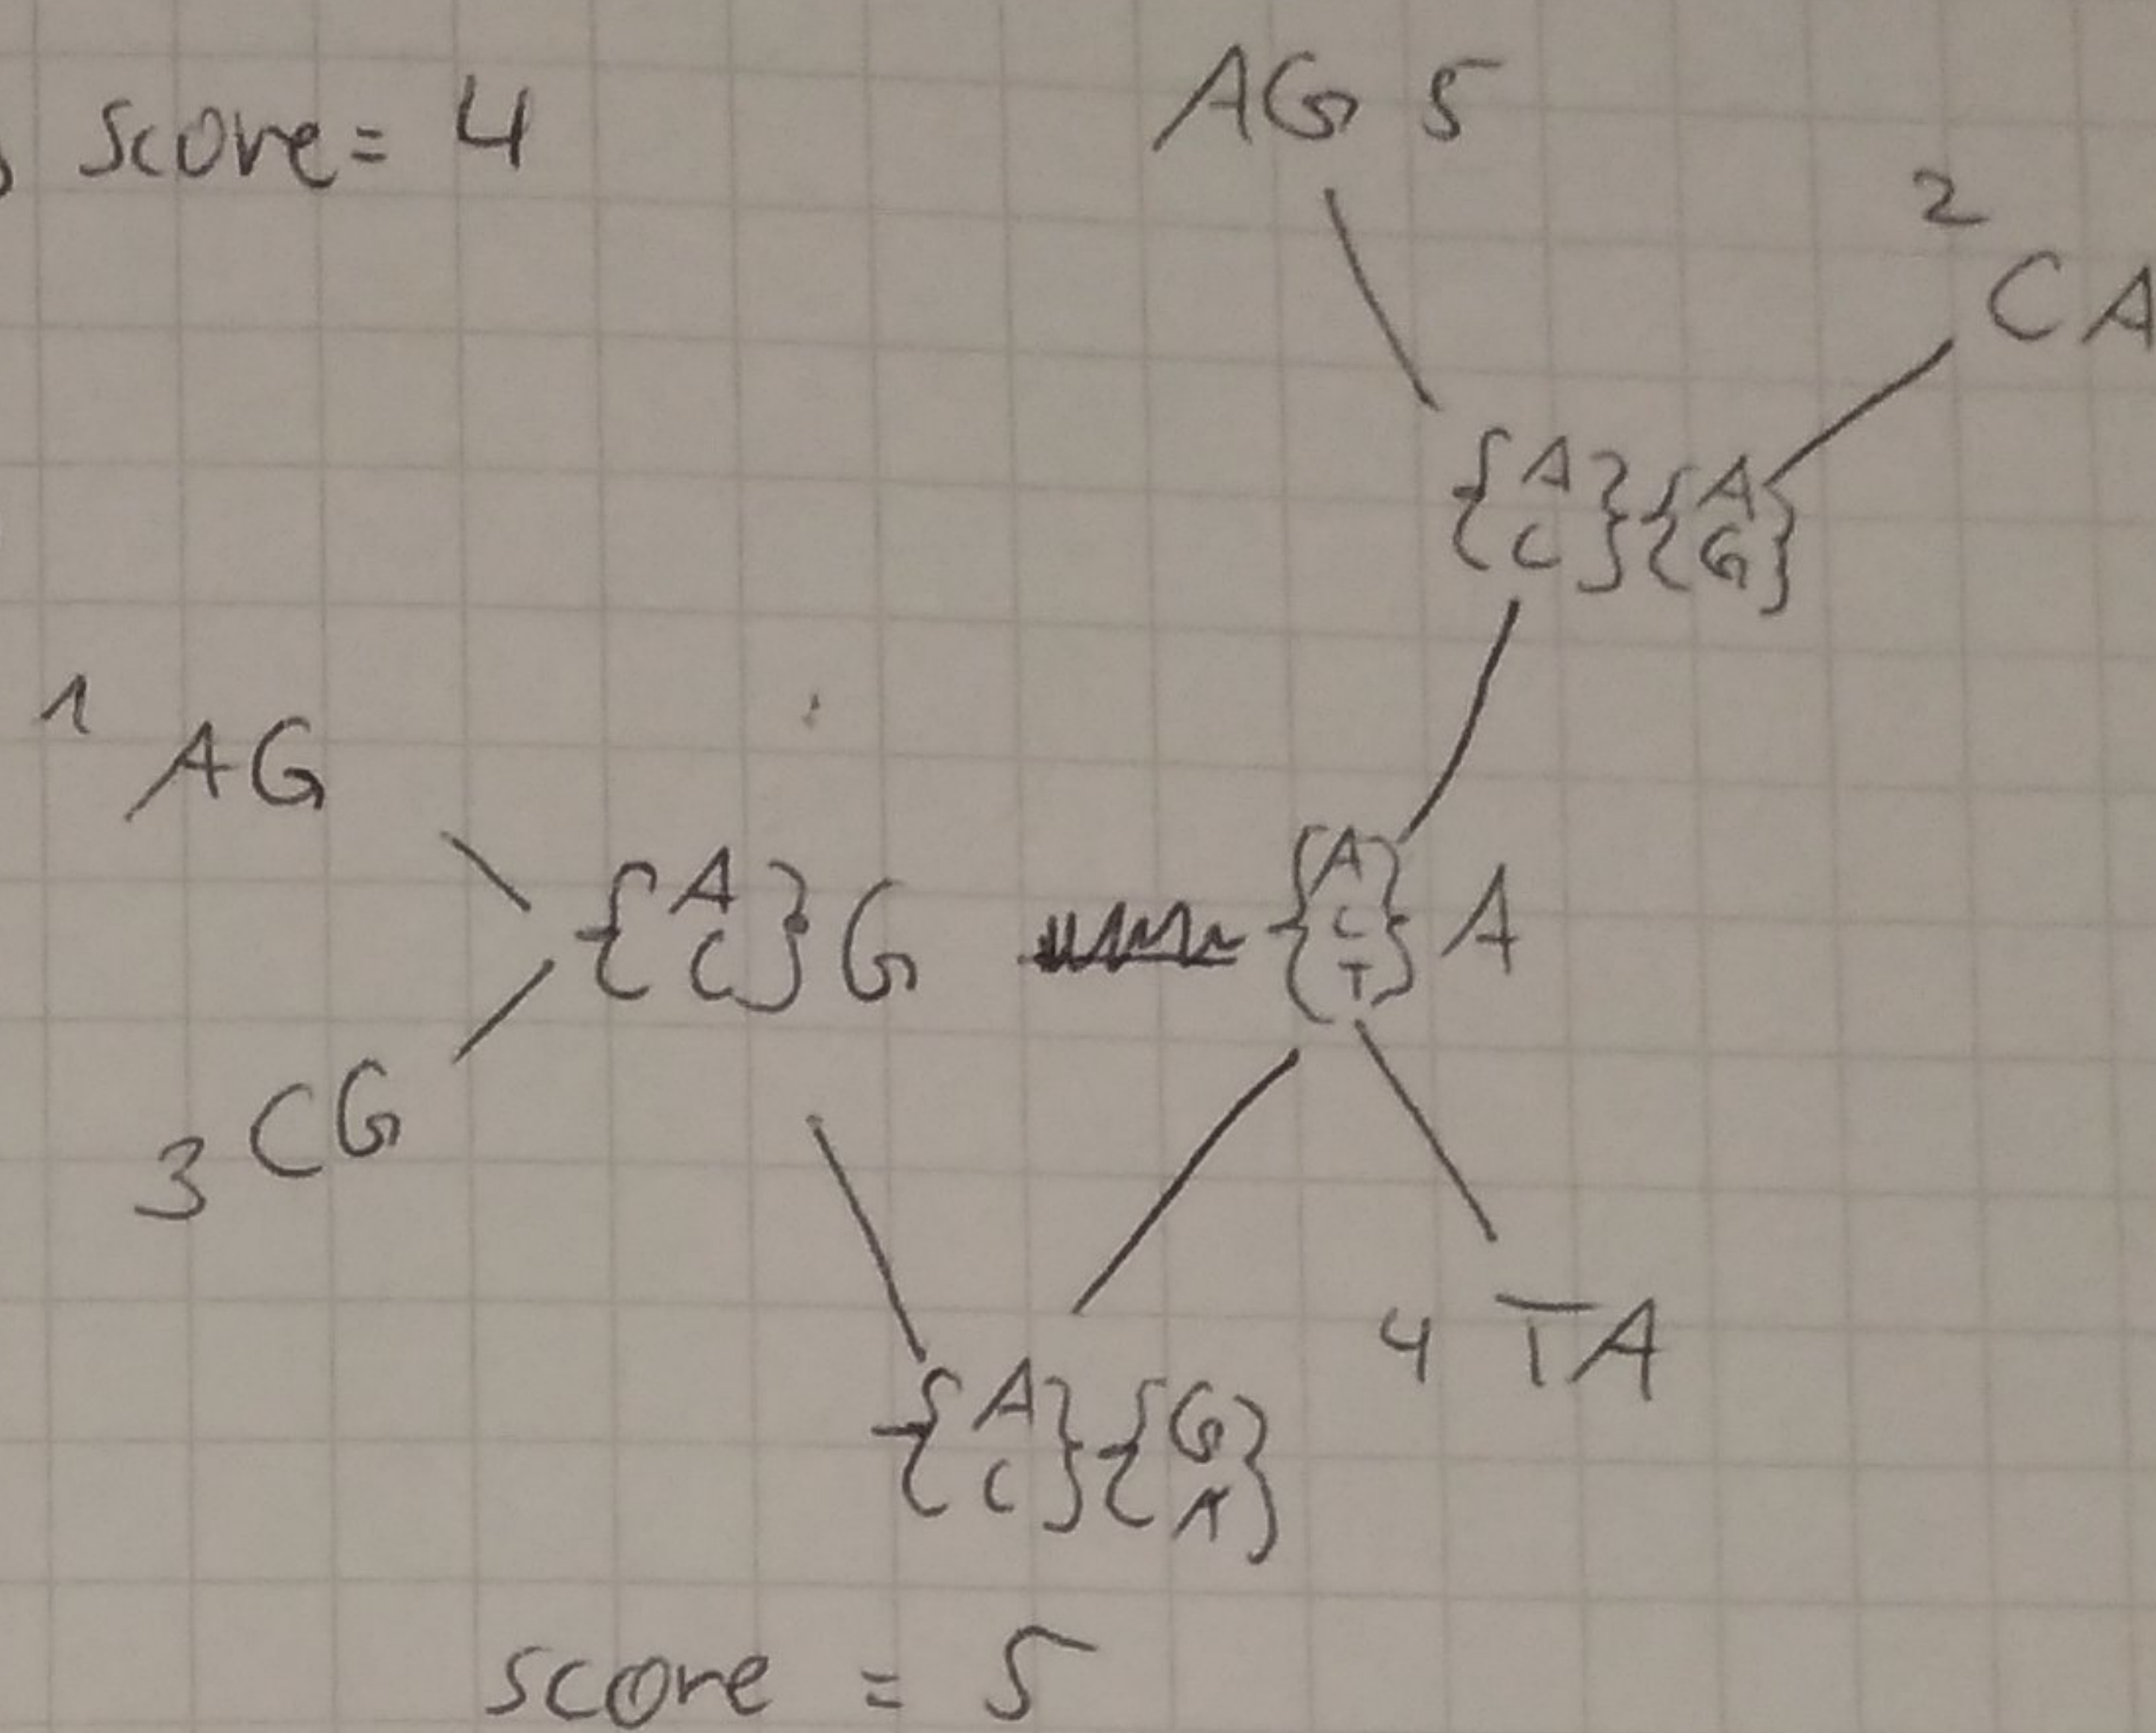 score = 4
AG 5
2
CA
{A C} {A G}
1 AG
{A C} G
{A C T} A
3 CG
4 TA
{A C} {G A}
score = 5